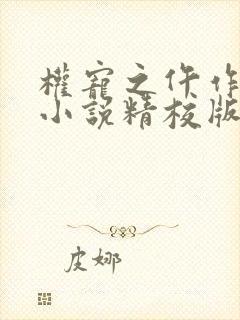 權寵之仵作
小說精校版
皮娜